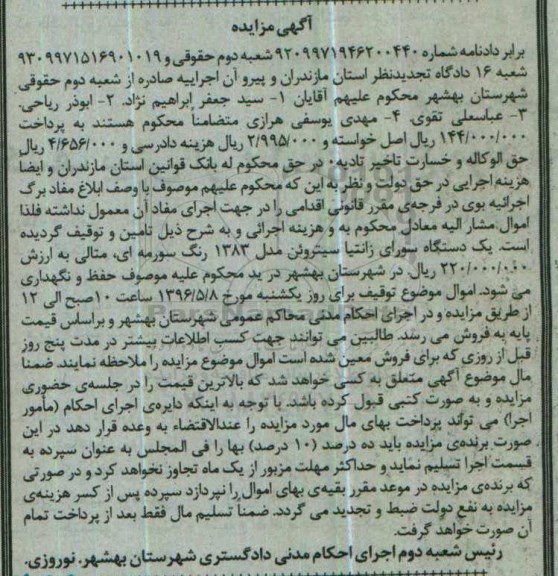 آگهی مزایده
برابر دادنامه شماره ۹۲۰۹۹۷۱۹۴۶۲۰۰۴۴۰ شعبه دوم حقوقی و ۹۳۰۹۹۷۱۵۱۶۹۰۱۰۱۹
شعبه ۱۶ دادگاه تجدیدنظر استان مازندران و پیرو آن اجراییه صادره از شعبه دوم حقوقی
شهرستان بهشهر محکوم علیهم آقایان ۱- سید جعفر ابراهیم نژاد. ۲- ابوذر ریاحی.
۳- عباسعلی تقوی. ۴- مهدی یوسفی هرازی متضامناً محکوم هستند به پرداخت
۱۴۴/۰۰۰/۰۰۰ ریال اصل خواسته و ۲/۹۹۵/۰۰۰ ریال هزینه دادرسی و ۴/۶۵۶/۰۰۰ ریال
حق الوکاله و خسارت تاخیر تادیه، در حق محکوم له بانک قوانین استان مازندران و ایضا
هزینه اجرایی در حق دولت و نظر به این که محکوم علیهم موصوف با وصف ابلاغ مفاد برگ
اجرائیه بوی در فرجه‌ی مقرر قانونی اقدامی را در جهت اجرای مفاد آن معمول نداشته فلذا
اموال مشار الیه معادل محکوم به و هزینه اجرائی و به شرح ذیل تامین و توقیف گردیده
است. یک دستگاه سورای زانتیا سیتروئن مدل ۱۳۸۳ رنگ سورمه ای، متالی به ارزش
۲۲۰/۰۰۰/۰۰۰ ریال. در شهرستان بهشهر در ید محکوم علیه موصوف حفظ و نگهداری
می شود. اموال موضوع توقیف برای روز یکشنبه مورخ ۱۳۹۶/۵/۸ ساعت ۱۰ صبح الی ۱۲
از طریق مزایده و در اجرای احکام مدنی محاکم عمومی شهرستان بهشهر و براساس قیمت
پایه به فروش می رسد. طالبین می توانند جهت کسب اطلاعات بیشتر در مدت پنج روز
قبل از روزی که برای فروش معین شده است اموال موضوع مزایده را ملاحظه نمایند. ضمنا
مال موضوع آگهی متعلق به کسی خواهد شد که بالاترین قیمت را در جلسه‌ی حضوری
مزایده و به صورت کتبی قبول کرده باشد. با توجه به اینکه دایره‌ی اجرای احکام (مأمور
اجرا) می تواند پرداخت بهای مال مورد مزایده را عندالاقتضاء به وعده قرار دهد در این
صورت برنده‌ی مزایده باید ده درصد (۱۰ درصد) بها را فی المجلس به عنوان سپرده به
قسمت اجرا تسلیم نماید و حداکثر مهلت مزبور از یک ماه تجاوز نخواهد کرد و در صورتی
که برنده‌ی مزایده در موعد مقرر بقیه‌ی بهای اموال را نپردازد سپرده پس از کسر هزینه‌ی
مزایده به نفع دولت ضبط و تجدید می گردد. ضمناً تسلیم مال فقط بعد از پرداخت تمام
آن صورت خواهد گرفت.
رئیس شعبه دوم اجرای احکام مدنی دادگستری شهرستان بهشهر. نوروزی.